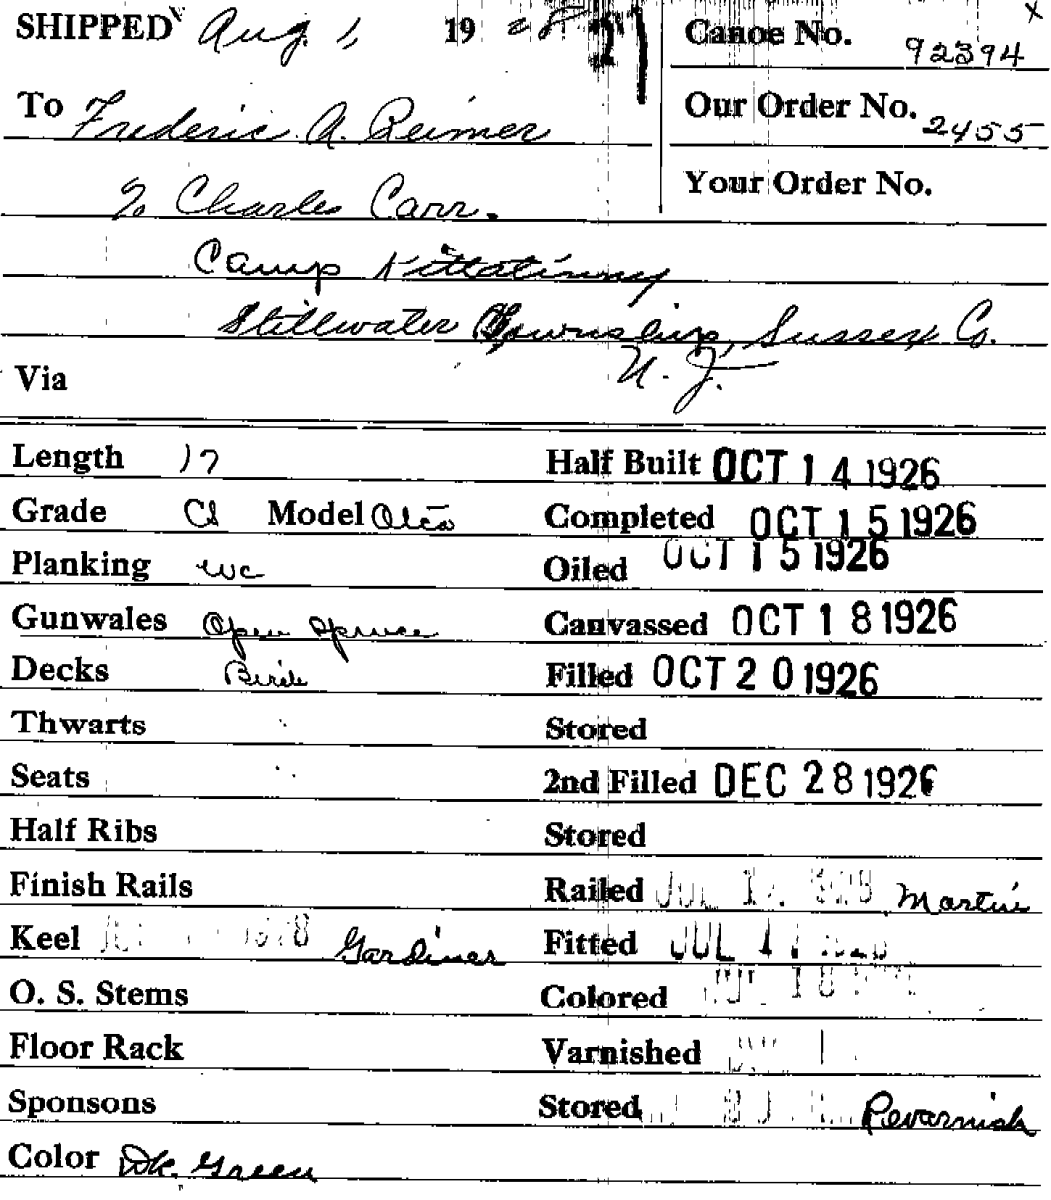 SHIPPED Aug. 1, 19 28
Canoe No. 92394
To Frederic A. Reimer
Our Order No. 2455
% Charles Carr.
Your Order No.
Camp Kittatinny
Stillwater Township, Sussex Co.
N. J.
Via
Length 17 Half Built OCT 14 1926
Grade CS Model Otca Completed OCT 15 1926
Planking wc Oiled OCT 15 1926
Gunwales Open Spruce Canvassed OCT 18 1926
Decks Birch Filled OCT 20 1926
Thwarts " Stored
Seats " 2nd Filled DEC 28 1926
Half Ribs Stored
Finish Rails Railed JUL Martin
Keel Gardiner Fitted JUL
O. S. Stems Colored 18
Floor Rack Varnished
Sponsons Stored Revarnish
Color Dk. Green